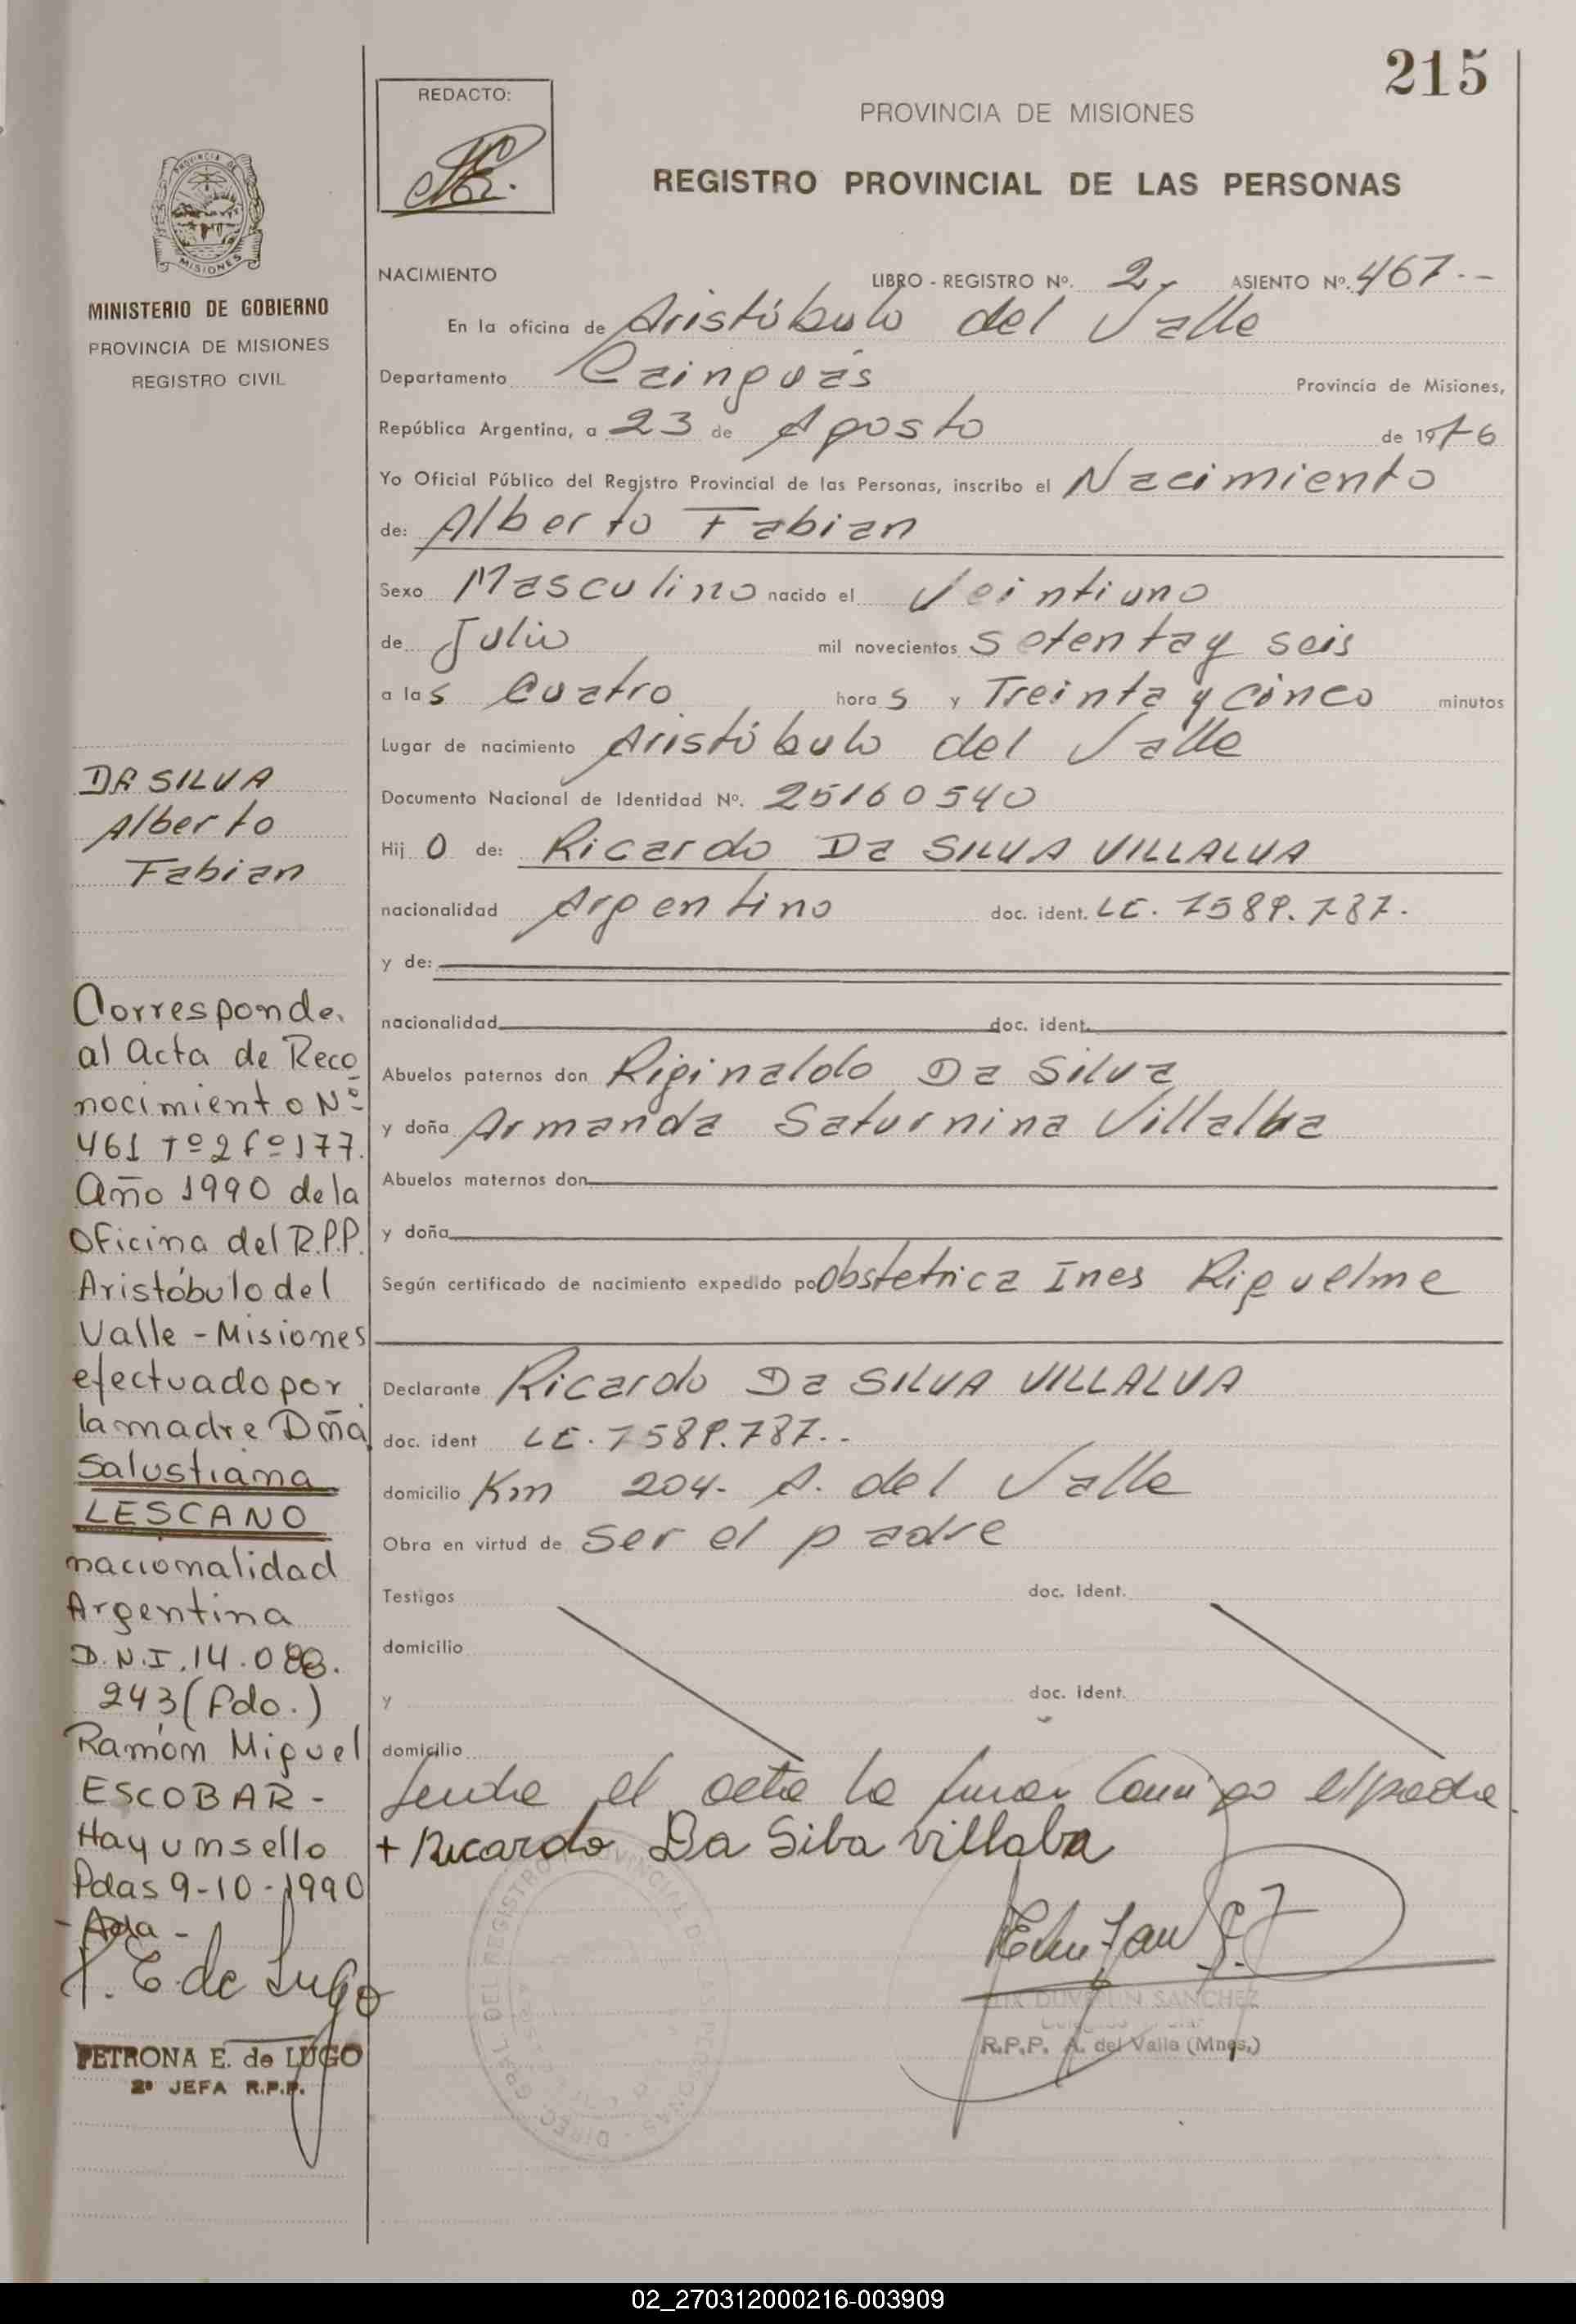 215
REDACTO:
PROVINCIA DE MISIONES
REGISTRO PROVINCIAL DE LAS PERSONAS
PROVINCIA DE
MISIONES
MINISTERIO DE GOBIERNO
PROVINCIA DE MISIONES
REGISTRO CIVIL
NACIMIENTO LIBRO - REGISTRO Nº. 2 ASIENTO Nº. 467--
En la oficina de Aristóbulo del Valle
Departamento Cainguás Provincia de Misiones,
República Argentina, a 23 de Agosto de 1976
Yo Oficial Público del Registro Provincial de las Personas, inscribo el Nacimiento
de: Alberto Fabian
Sexo Masculino nacido el Veintiuno
de Julio mil novecientos Setenta y seis
a las Cuatro horas y Treinta y cinco minutos
Lugar de nacimiento Aristóbulo del Valle
Documento Nacional de Identidad Nº. 25160540
Hijo de: Ricardo Da SILVA VILLALVA
nacionalidad Argentino doc. ident. LE. 7589.787.
y de:
nacionalidad doc. ident.
Abuelos paternos don Riginaldo Da Silva
y doña Armanda Saturnina Villalba
Abuelos maternos don
y doña
Según certificado de nacimiento expedido po Obstetrica Ines Riquelme
Declarante Ricardo Da SILVA VILLALVA
doc. ident LE. 7589.787.-
domicilio Km 204- A. del Valle
Obra en virtud de Ser el padre
Testigos doc. ident.
domicilio
y doc. ident.
domicilio
el acta la el padre
+ Ricardo Da Silba villalba
SANCHEZ
R.P.P. A. del Valle (Mnes.)
DIREC. GRAL. DEL REGISTRO PROVINCIAL DE LAS PERSONAS
DA SILVA
Alberto
Fabian
Corresponde
al acta de Reco
nocimiento Nº
461 Tº2 fº177.
Año 1990 de la
Oficina del R.P.P.
Aristóbulo del
Valle - Misiones
efectuado por
la madre Dña
Salustiana
LESCANO
nacionalidad
Argentina
D.N.I. 14.088.
243 (Fdo.)
Ramón Miguel
ESCOBAR -
Hay un sello
Pdas 9-10-1990
- Ada -
P. E. de Lugo
PETRONA E. de LUGO
2ª JEFA R.P.P.
02_270312000216-003909